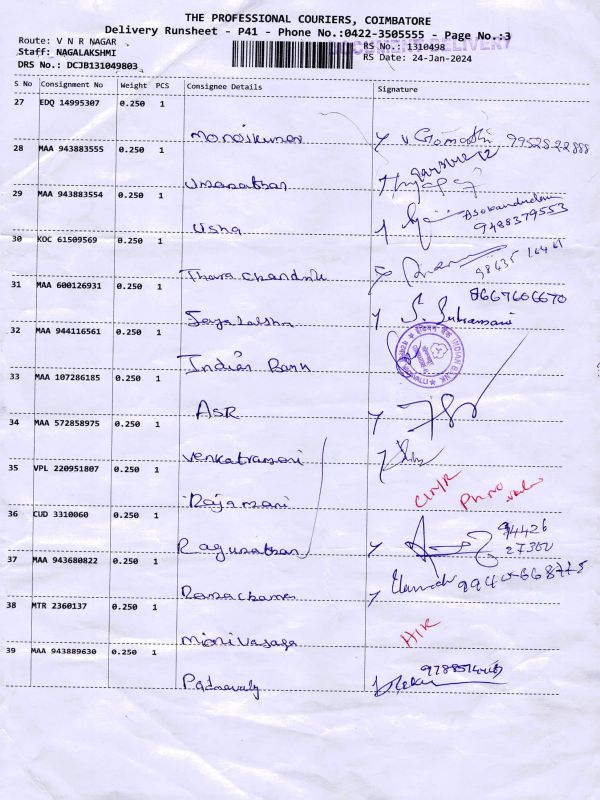 THE PROFESSIONAL COURIERS, COIMBATORE
Delivery Runsheet - P41 - Phone No.:0422-3505555 - Page No.:3
Route: V N R NAGAR
RS No.: 1310498
DOCUMENT DELIVERY
Staff: NAGALAKSHMI
RS Date: 24-Jan-2024
DRS No.: DCJB131049803
S No Consignment No Weight PCS Consignee Details Signature
27 EDQ 14995307 0.250 1
Manojkumar 9952822888
28 MAA 943883555 0.250 1
Umanathan
29 MAA 943883554 0.250 1
Usha 9488379553
30 KOC 61509569 0.250 1
Tharachandrk
31 MAA 600126931 0.250 1
8667606670
Jayalakshmi
32 MAA 944116561 0.250 1
Indian Bank
INDIAN BANK
33 MAA 107286185 0.250 1
ASR
34 MAA 572858975 0.250 1
Venkatramani
35 VPL 220951807 0.250 1
Rajamani Ph no
36 CUD 3310060 0.250 1
Ragunathan 94426
27360
37 MAA 943680822 0.250 1
38 MTR 2360137 0.250 1
Manivasaga
39 MAA 943889630 0.250 1